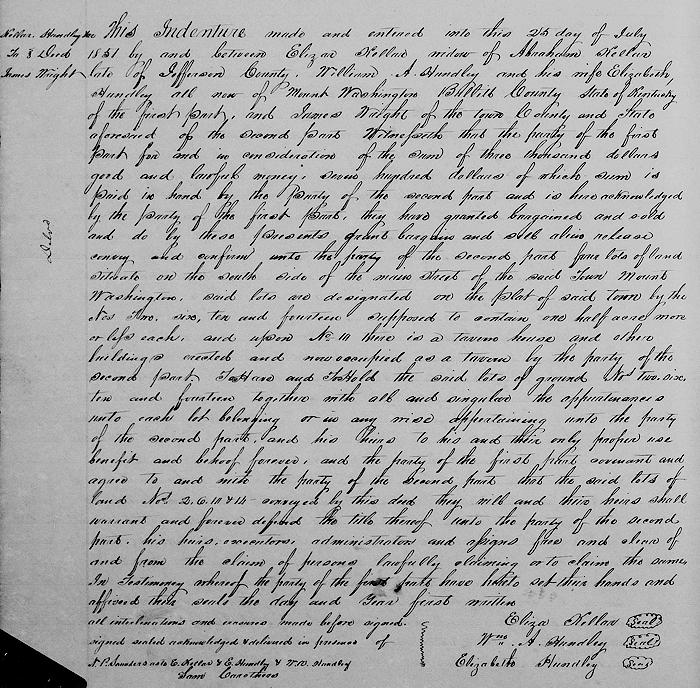 Kellar, Hundley &c
To } Deed
James Wright
This Indenture made and entered into this 25 day of July
1851 by and between Eliza Kellar widow of Abraham Kellar
late of Jefferson County, William A. Hundley and his wife Elizabeth
Hundley all now of Mount Washington Bullitt County State of Kentucky
of the first part, and James Wright of the town County and State
aforesaid of the second part Witnesseth that the party of the first
part for and in consideration of the sum of three thousand dollars
good and lawful money, seven hundred dollars of which sum is
paid in hand by the party of the second part and is here acknowledged
by the party of the first part, they have granted bargained and sold
and do by these presents, grant bargain and sell alien release
convey and confirm unto the party of the second part four lots of land
situate on the south side of the main street of the said Town Mount
Washington, said lots are designated on the plat of said town by the
Nos two, six, ten and fourteen supposed to contain one half acre more
or less each, and upon No 10 there is a tavern house and other
buildings erected and now occupied as a tavern by the party of the
second part, To Have and To Hold the said lots of ground No two, six,
ten and fourteen together with all and singular the appurtenances
unto each lot belonging or in any wise appertaining unto the party
of the second part, and his heirs to his and their only proper use
benefit and behoof forever, and the party of the first part covenant and
agree to and with the party of the second part that the said lots of
land Nos 2, 6, 10 & 14 conveyed by this deed they will and their heirs shall
warrant and forever defend the title thereof unto the party of the second
part, his heirs, executors, administrators and assigns free and clear of
and from the claim of persons lawfully claiming or to claim the same
In Testimony whereof the party of the first part have hereto set their hands and
affixed their seals the day and Year first written
all interlineations and erasures made before signed.
signed sealed acknowledged & delivered in presence of
N P Saunders as to E. Kellar & E. Hundley & W. Hundley
Sam Carothers
Eliza Kellar Seal
Wm A. Hundley Seal
Elizabeth Hundley Seal